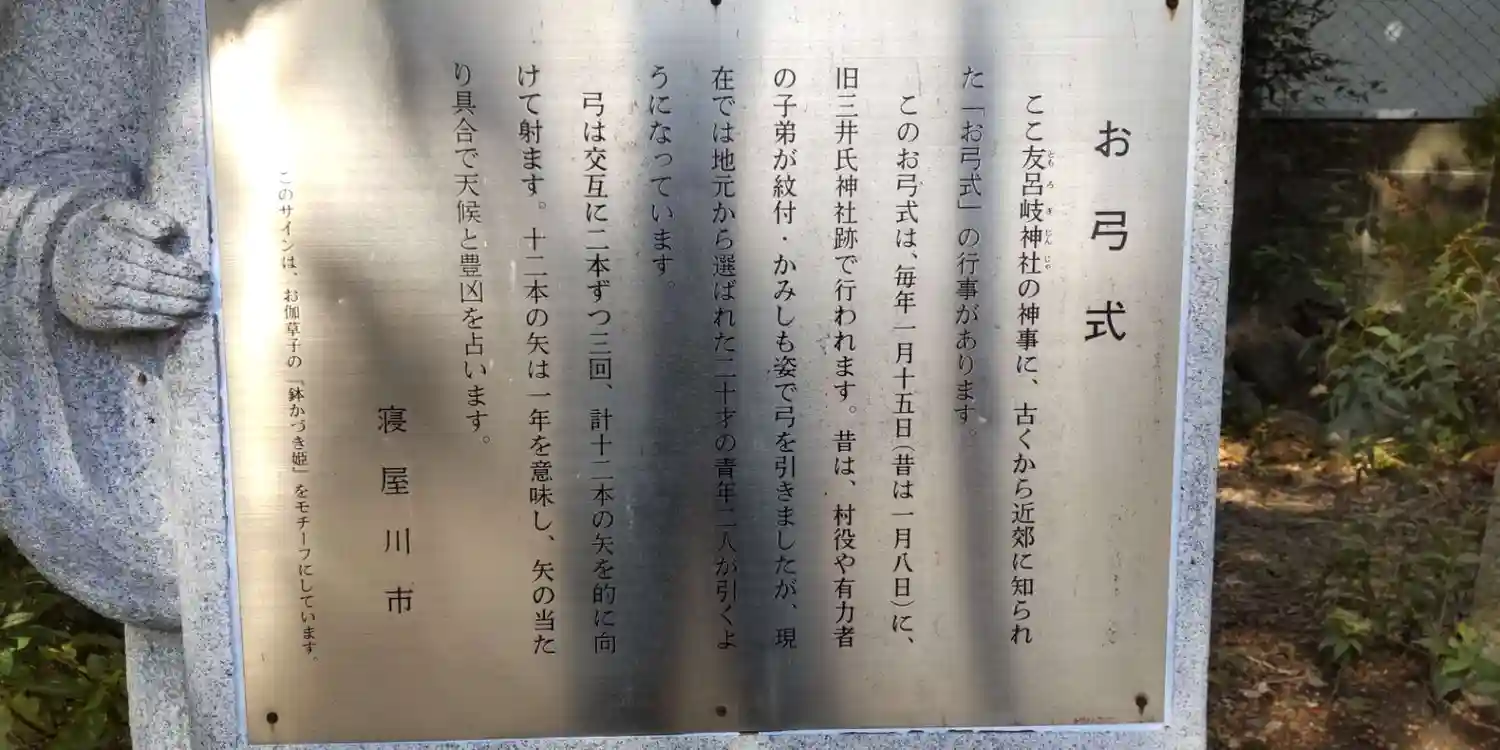 お弓式
ここ友呂岐神社の神事に、古くから近郊に知られ
ともろぎじんじゃ
た「お弓式」の行事があります。
このお弓式は、毎年一月十五日(昔は一月八日)に、
旧三井氏神社跡で行われます。昔は、村役や有力者
の子弟が紋付・かみしも姿で弓を引きましたが、現
在では地元から選ばれた二十才の青年二人が引くよ
うになっています。
弓は交互に二本ずつ三回、計十二本の矢を的に向
けて射ます。十二本の矢は一年を意味し、矢の当た
り具合で天候と豊凶を占います。
寝屋川市
このサインは、お伽草子の「鉢かづき姫」をモチーフにしています。